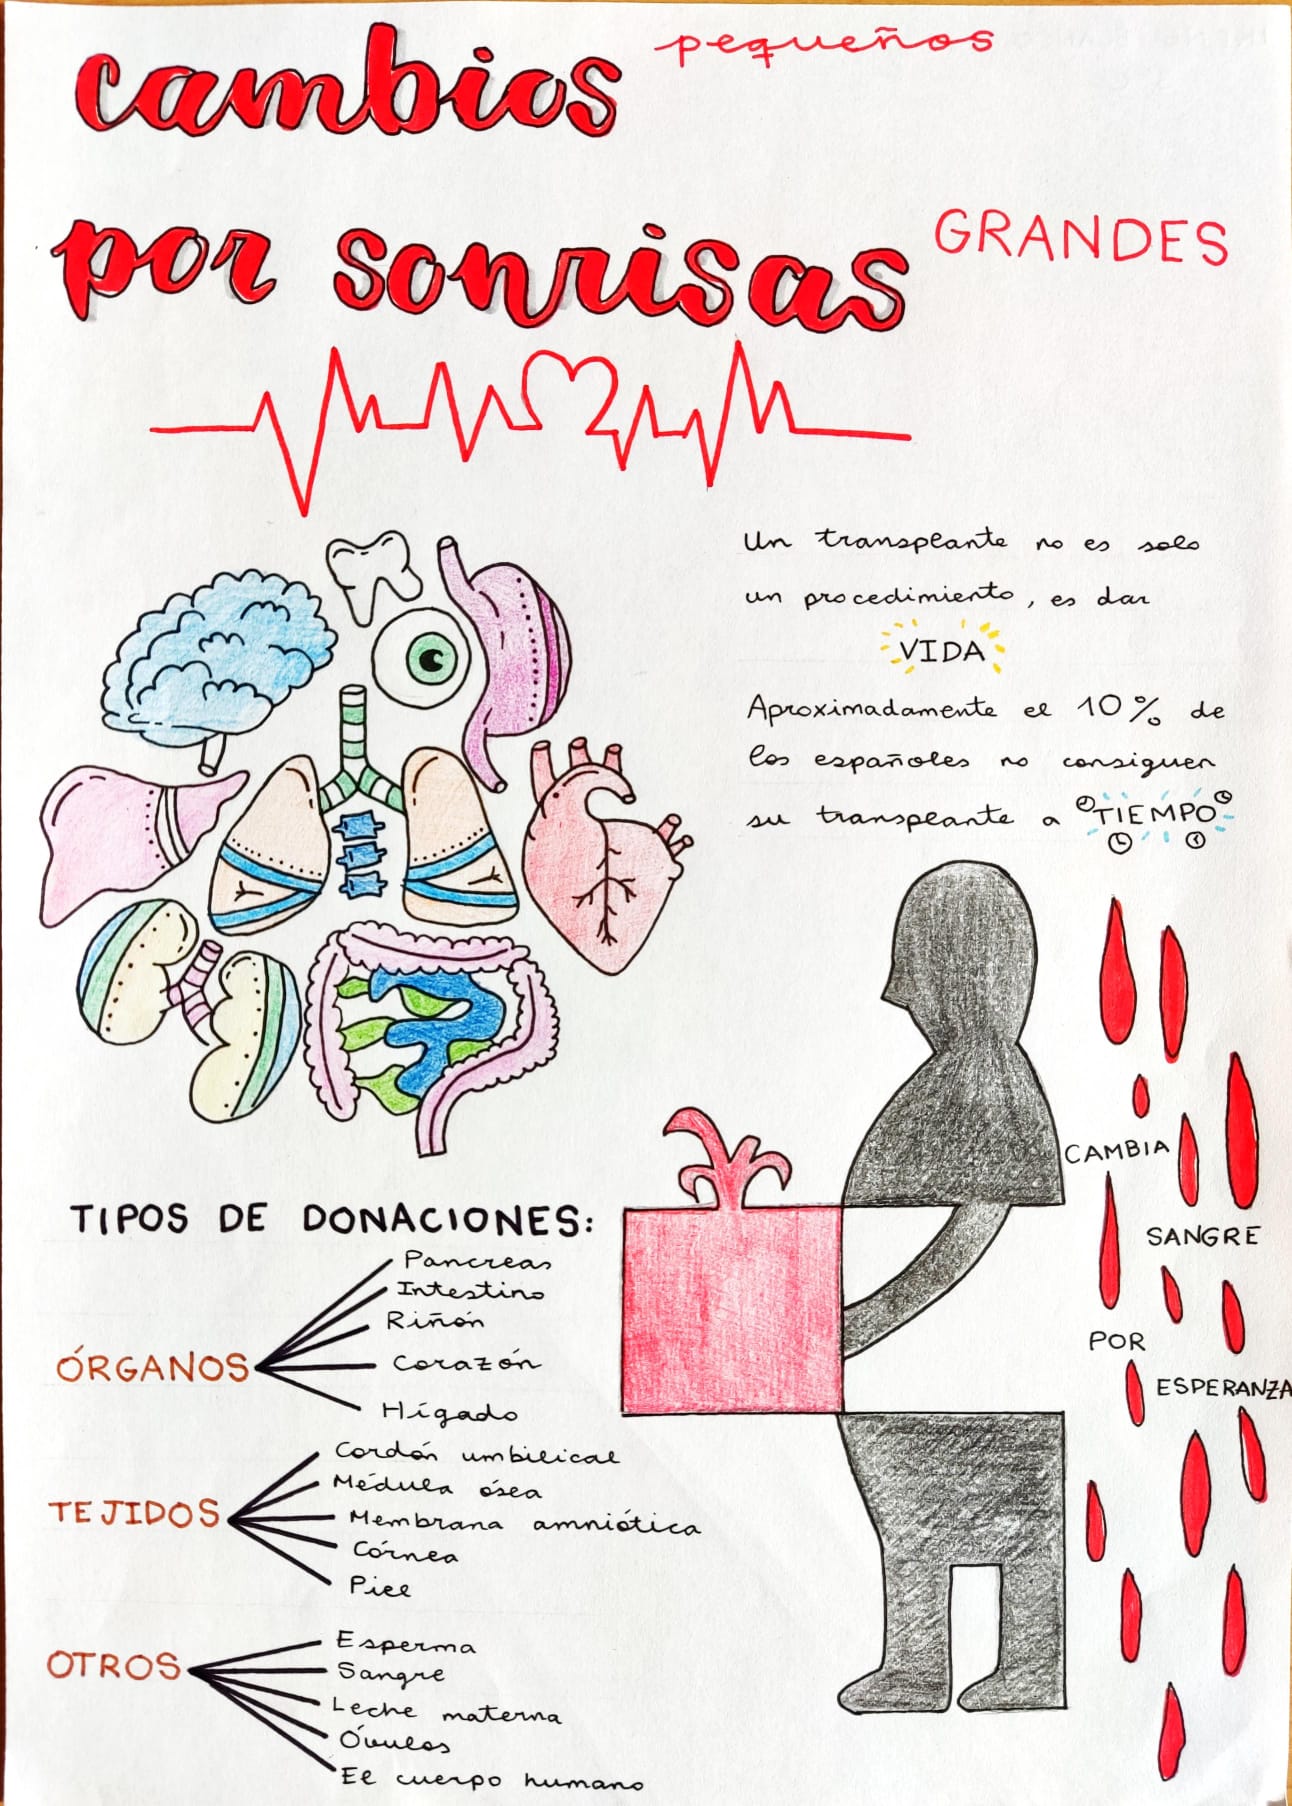 cambios pequeños
por sonrisas GRANDES
Un transplante no es solo
un procedimiento, es dar
VIDA
Aproximadamente el 10% de
los españoles no consiguen
su transplante a TIEMPO
CAMBIA
SANGRE
POR
ESPERANZA
TIPOS DE DONACIONES:
ÓRGANOS
Pancreas
Intestino
Riñón
Corazón
Hígado
TEJIDOS
Cordón umbilical
Médula ósea
Membrana amniótica
Córnea
Piel
OTROS
Esperma
Sangre
Leche materna
Óvulos
El cuerpo humano